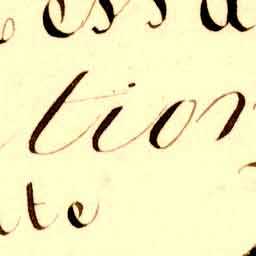 essa
tion
te